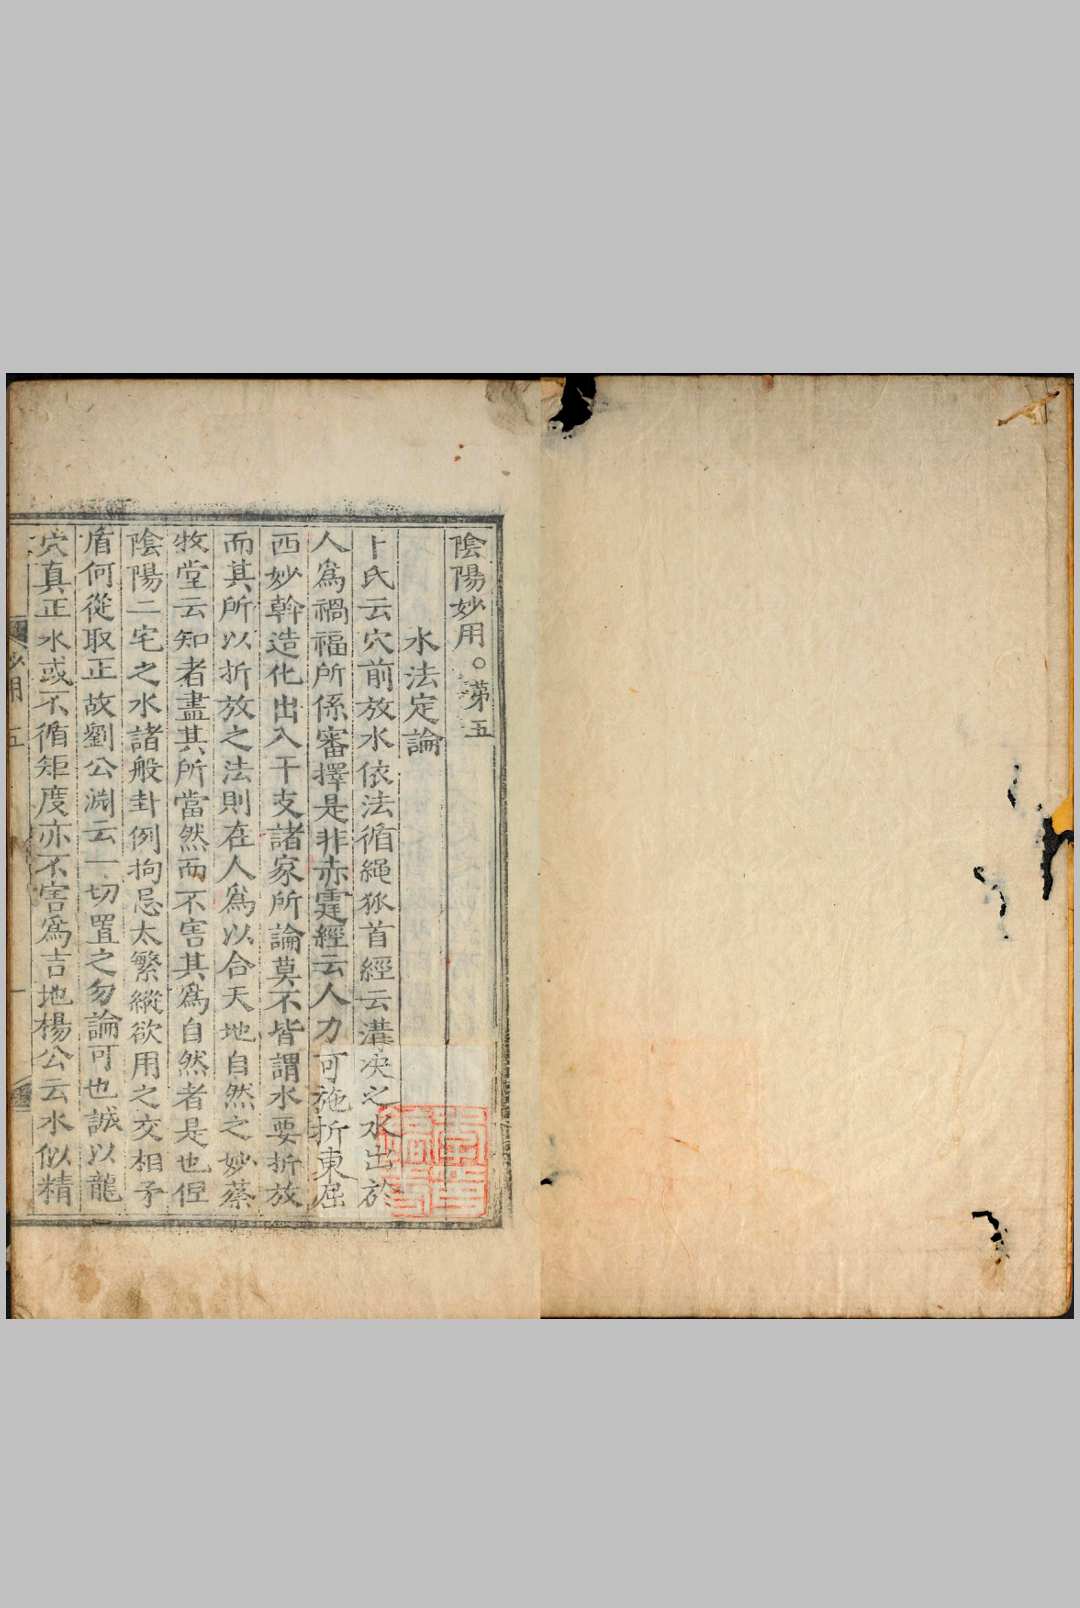 陰陽妙用○第五
水法定論
卜氏云穴前放水依法循繩狐首經云溝決之水出於
人爲禍福所係審擇是非赤霆經云人力可施折東屈
西妙斡造化出入干支諸家所論莫不皆謂水要折放
而其所以折放之法則在人爲以合天地自然之妙蔡
牧堂云知者盡其所當然而不害其爲自然者是也但
陰陽二宅之水諸般卦例拘忌太繁縱欲用之交相矛
盾何從取正故劉公淵云一切置之勿論可也誠以龍
穴真正水或不循矩度亦不害爲吉地楊公云水似精
妙用 五